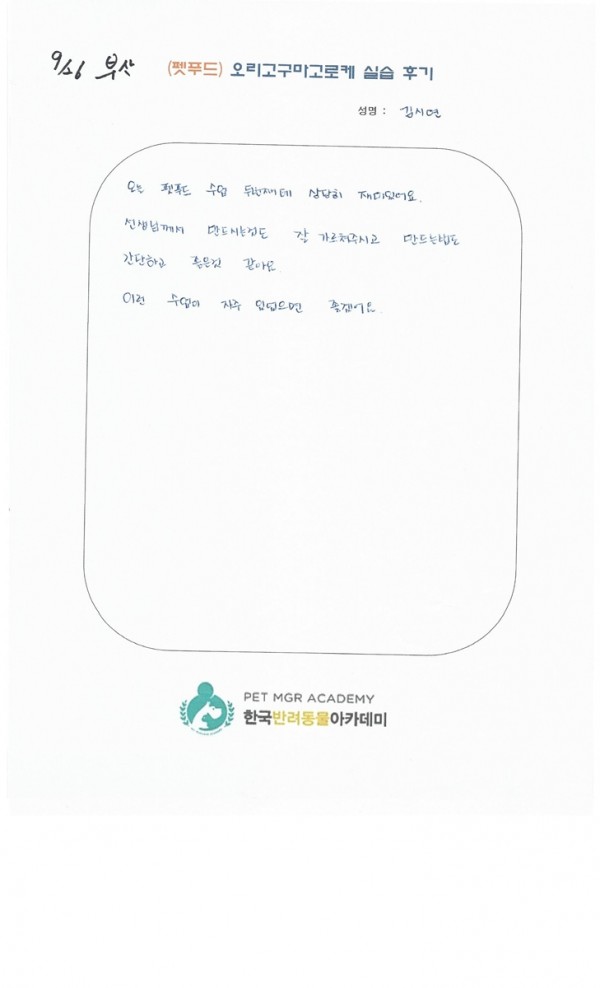 9/26 부산 (펫푸드) 오리고구마고로케 실습 후기
성명 : 김시연
오늘 펫푸드 수업 두번째인데 상당히 재미있어요.
선생님께서 만드시는것도 잘 가르쳐주시고 만드는법도
간단하고 좋은것 같아요.
이런 수업이 자주 있었으면 좋겠어요.
PET MGR ACADEMY
한국반려동물아카데미